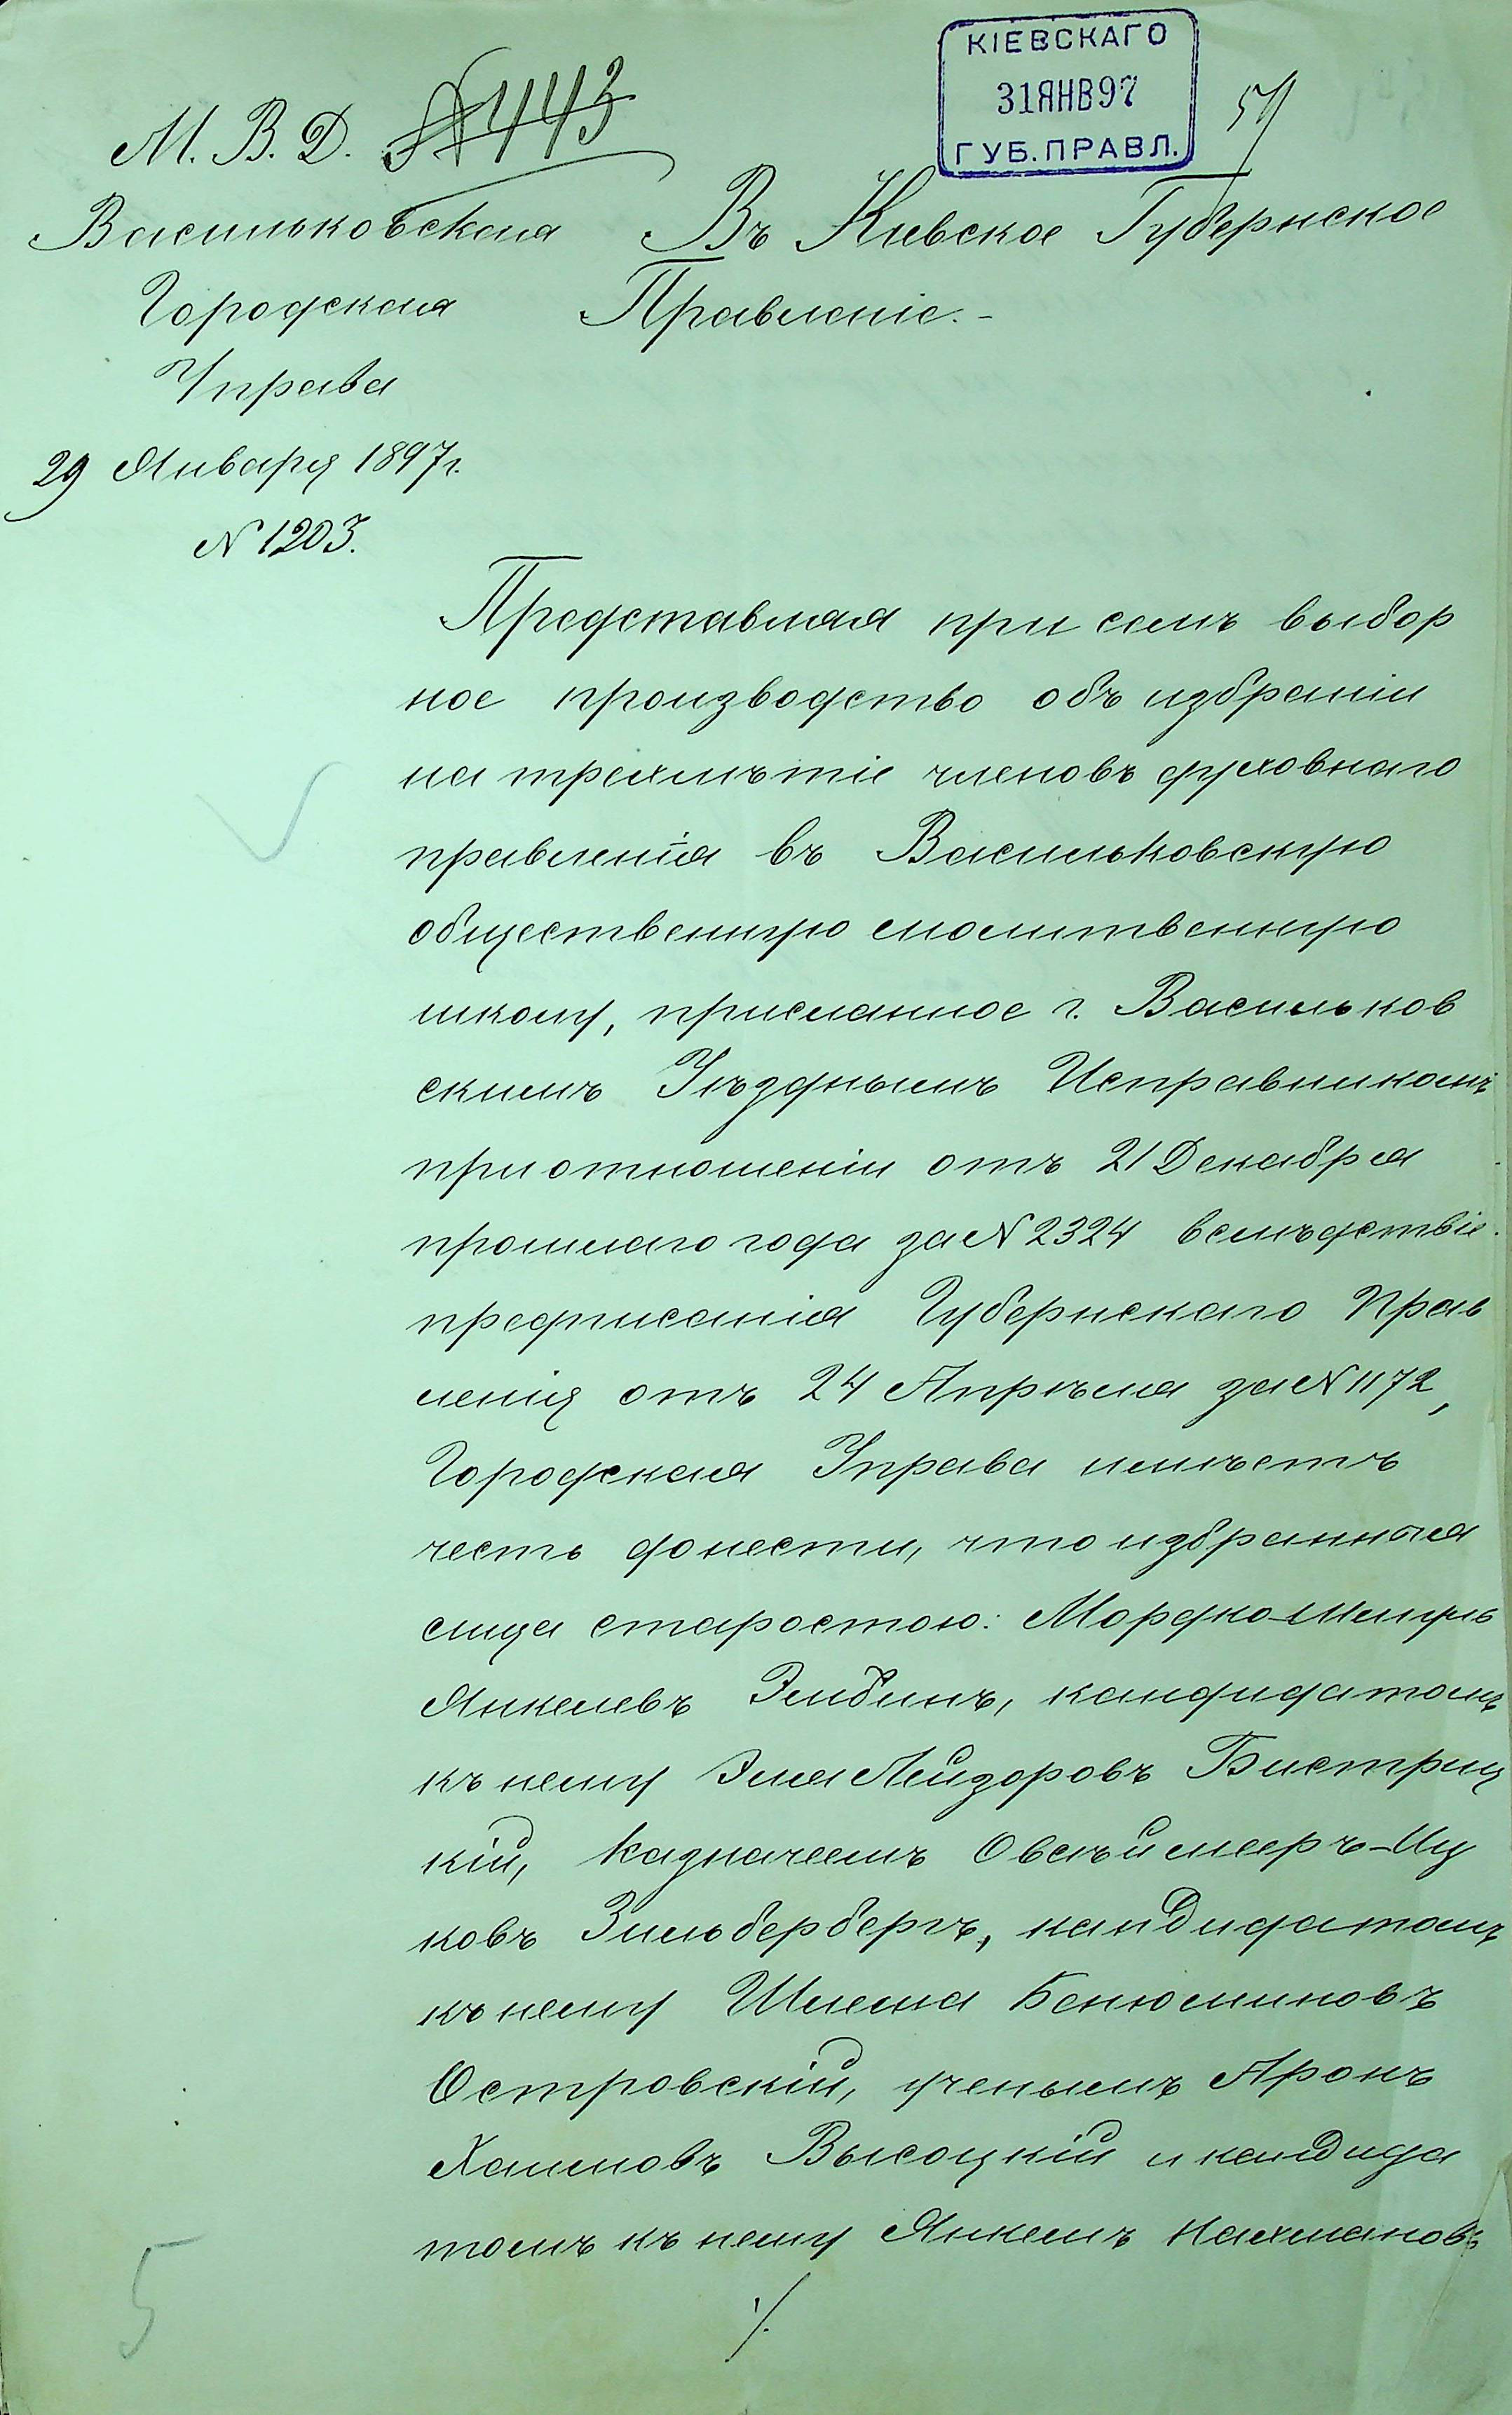 КІЕВСКАГО
31 ЯНВ 97
ГУБ. ПРАВЛ.
М. В. Д. № 443
Васильковская
Городская
Управа
29 Января 1897 г.
№ 1203.
Въ Киевское Губернское
Правленіе.-
Представляя при семъ выбор
ное производство объ избраніи
на трехлѣтіе членовъ духовнаго
правленія въ Васильковскую
общественную молитвенную
школу, присланное г. Васильков
скимъ Уѣзднымъ Исправникомъ
при отношеніи отъ 21 Декабря
прошлаго года за № 2324 вслѣдствіе
предписанія Губернскаго Прав
ленія отъ 24 Апрѣля за № 1172,
Городская Управа имѣетъ
честь донести, что избранныя
лица старостою: Мордко-
Янкелевъ Элбинъ, кандидатомъ
къ нему Эля Лейзоровъ Бистриц
кій, казначеемъ Овсѣй Мееръ-Иц
ковъ Зильбербергъ, кандидатомъ
къ нему Шлема Бенюминовъ
Островскій, ученымъ Аронъ
Хаимовъ Высоцкій и кандида
томъ къ нему Янкель Нахмановъ
./.
5